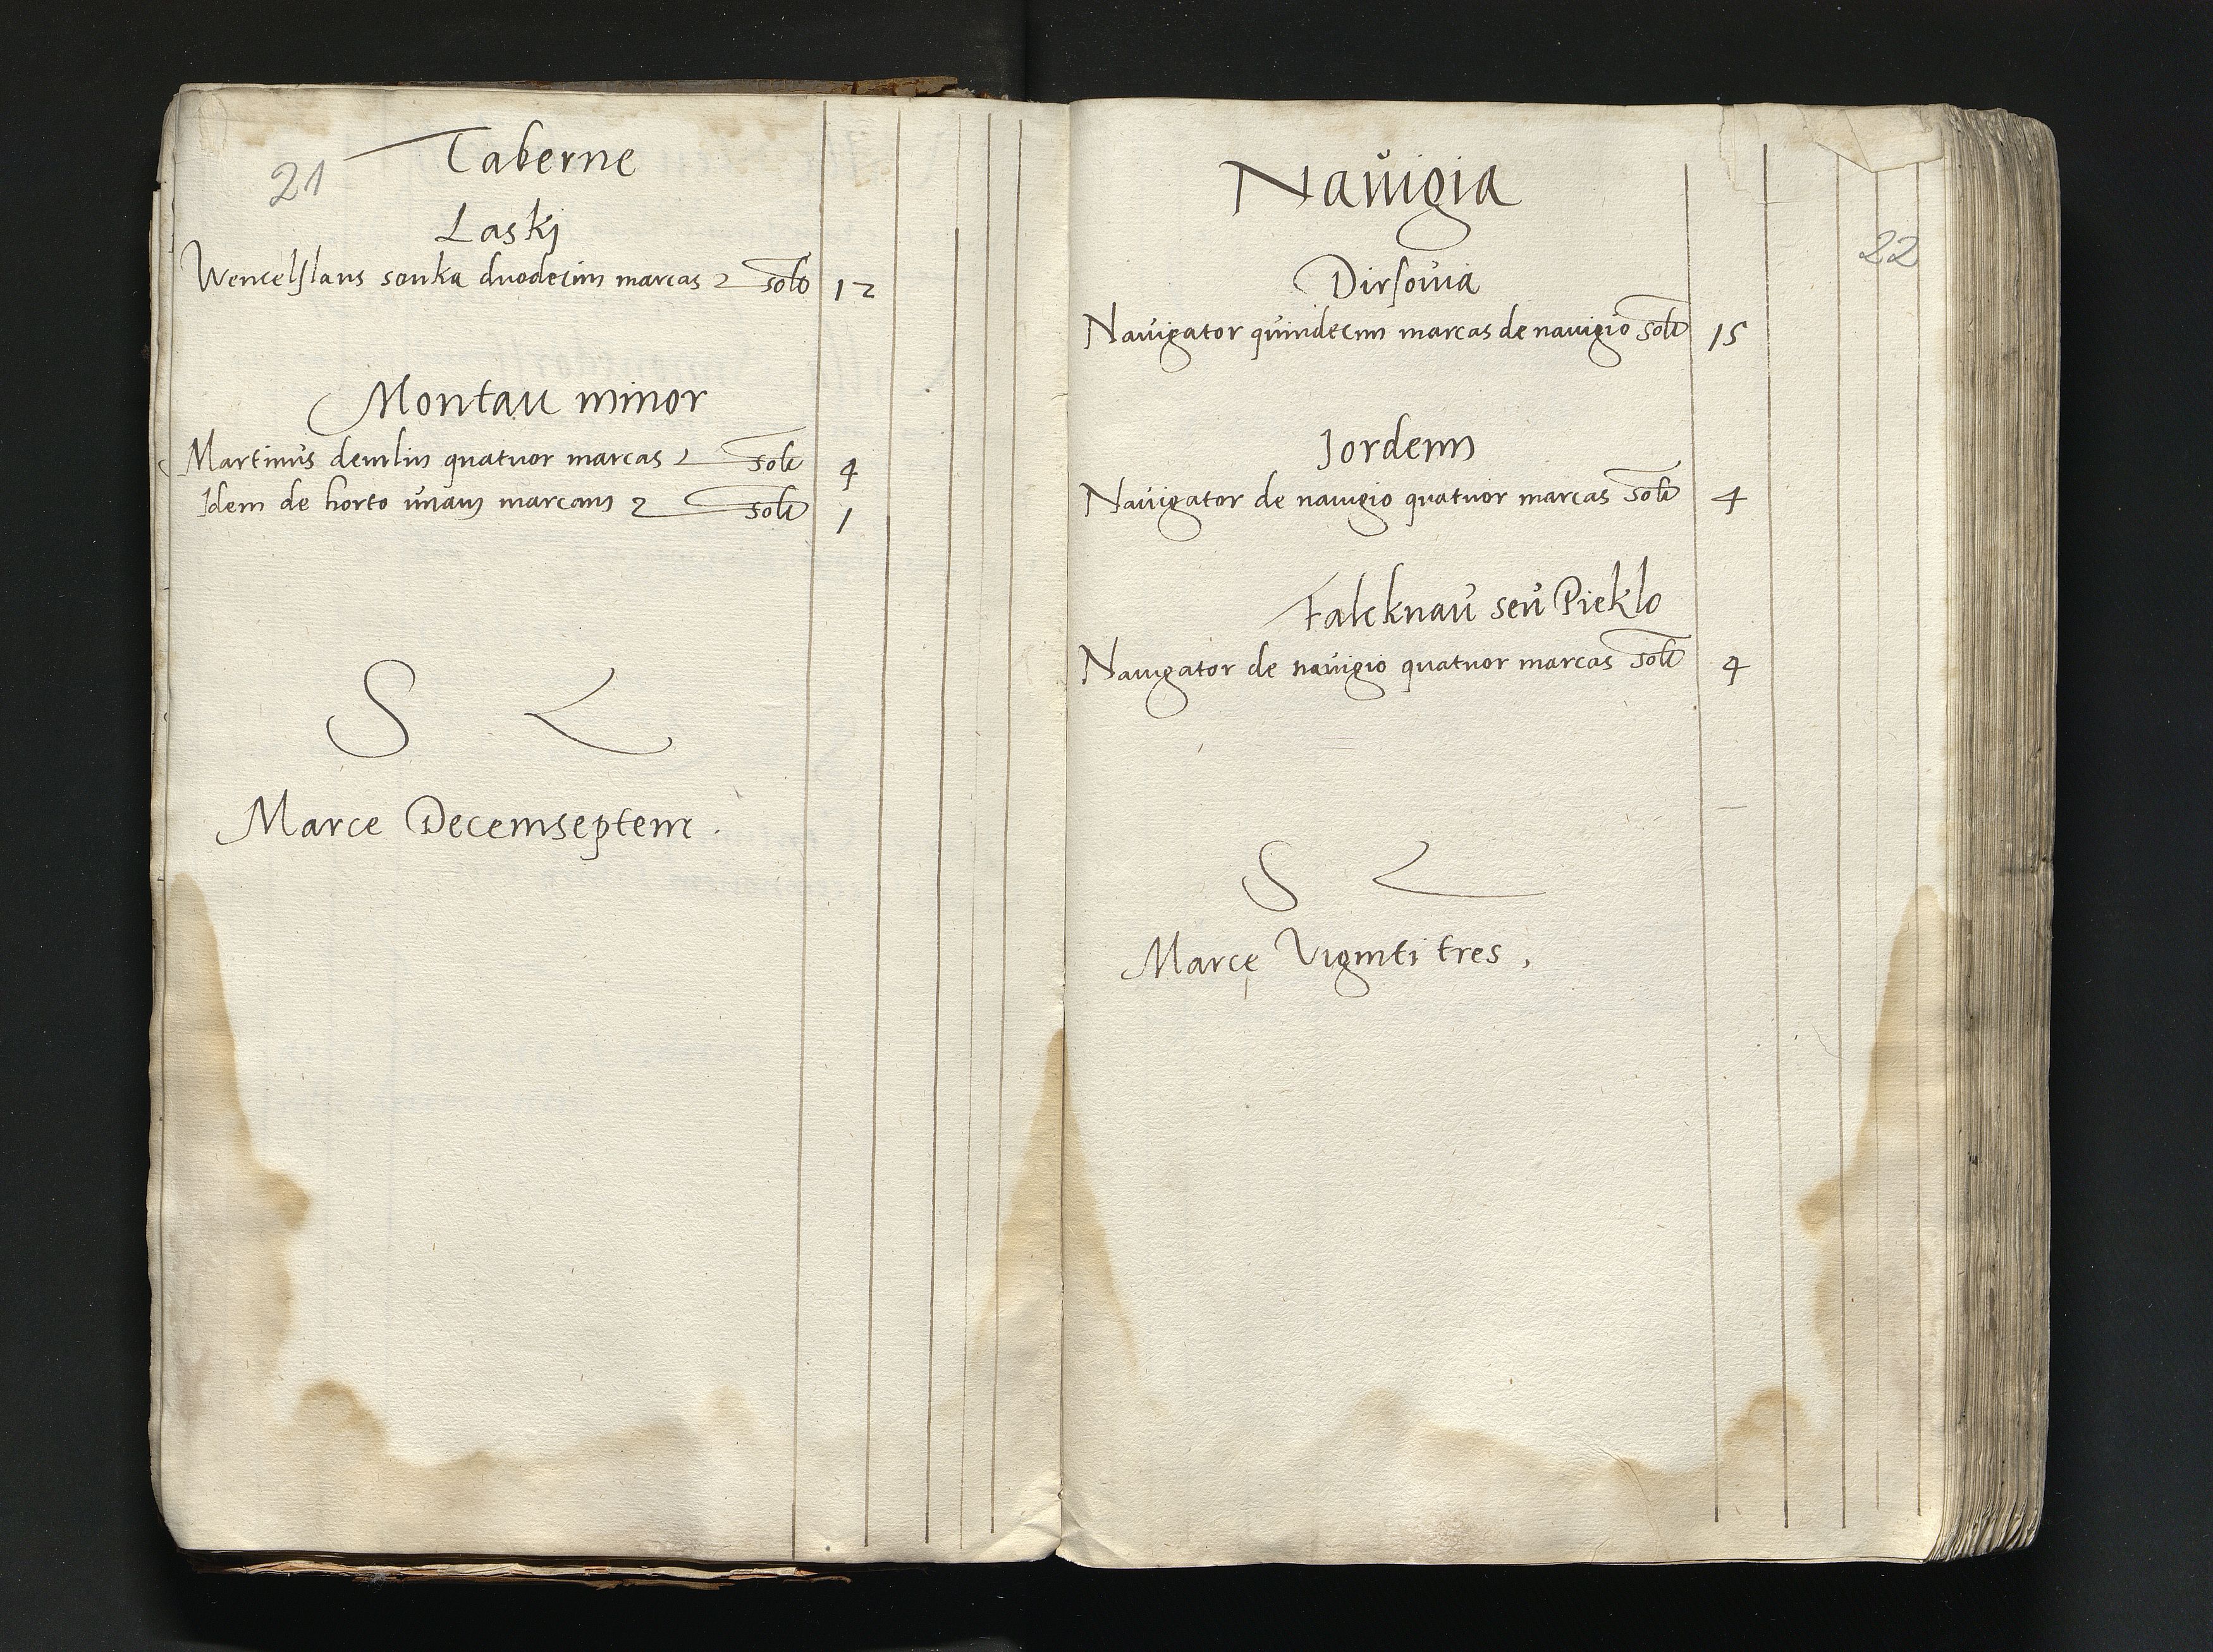 21
Taberne
Laskj
Wencelslaus sonka duodecim marcas solt 12
Montau minor
Martinus demlin quatuor marcas solt 4
Idem de horto unam marcam solt 1
S
Marce Decemseptem.
Nauigia
22
Dirsouia
Nauigator quindecim marcas de nauigio solt 15
Jordem
Nauigator de nauigio quatuor marcas solt 4
Falcknau seu Pieklo
Nauigator de nauigio quatuor marcas solt 4
S
Marcę Viginti tres,